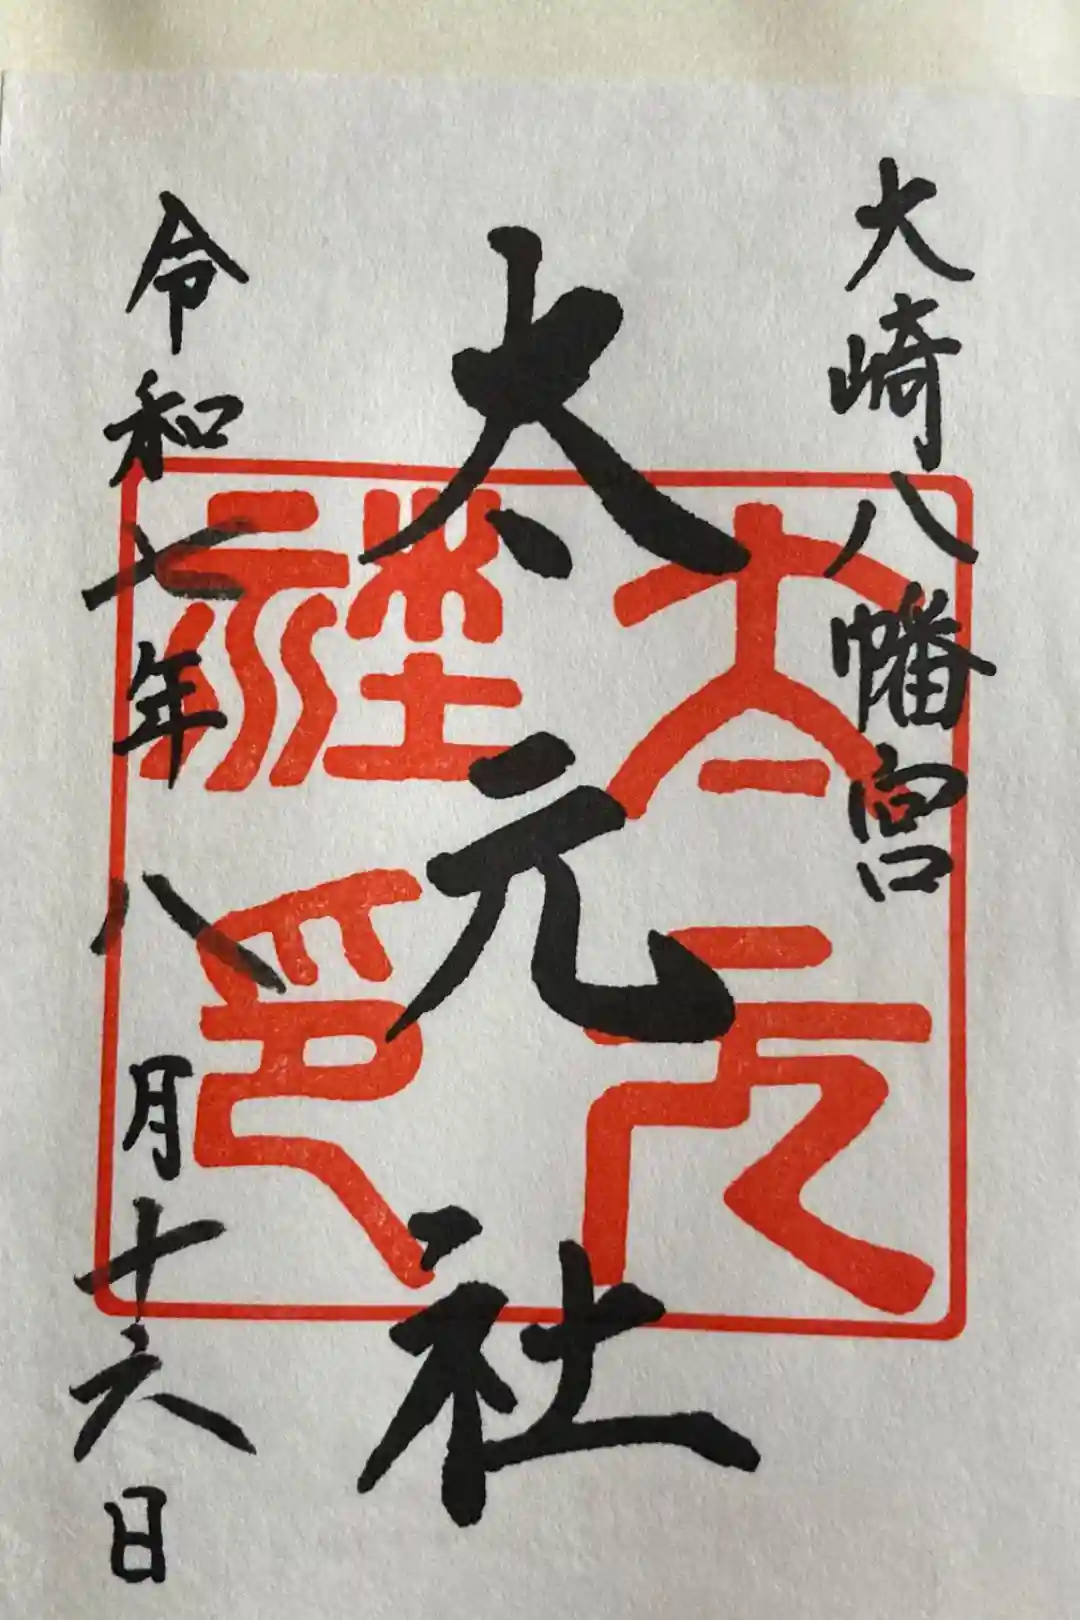 大崎八幡宮
太元社
太元社印
令和七年八月十六日